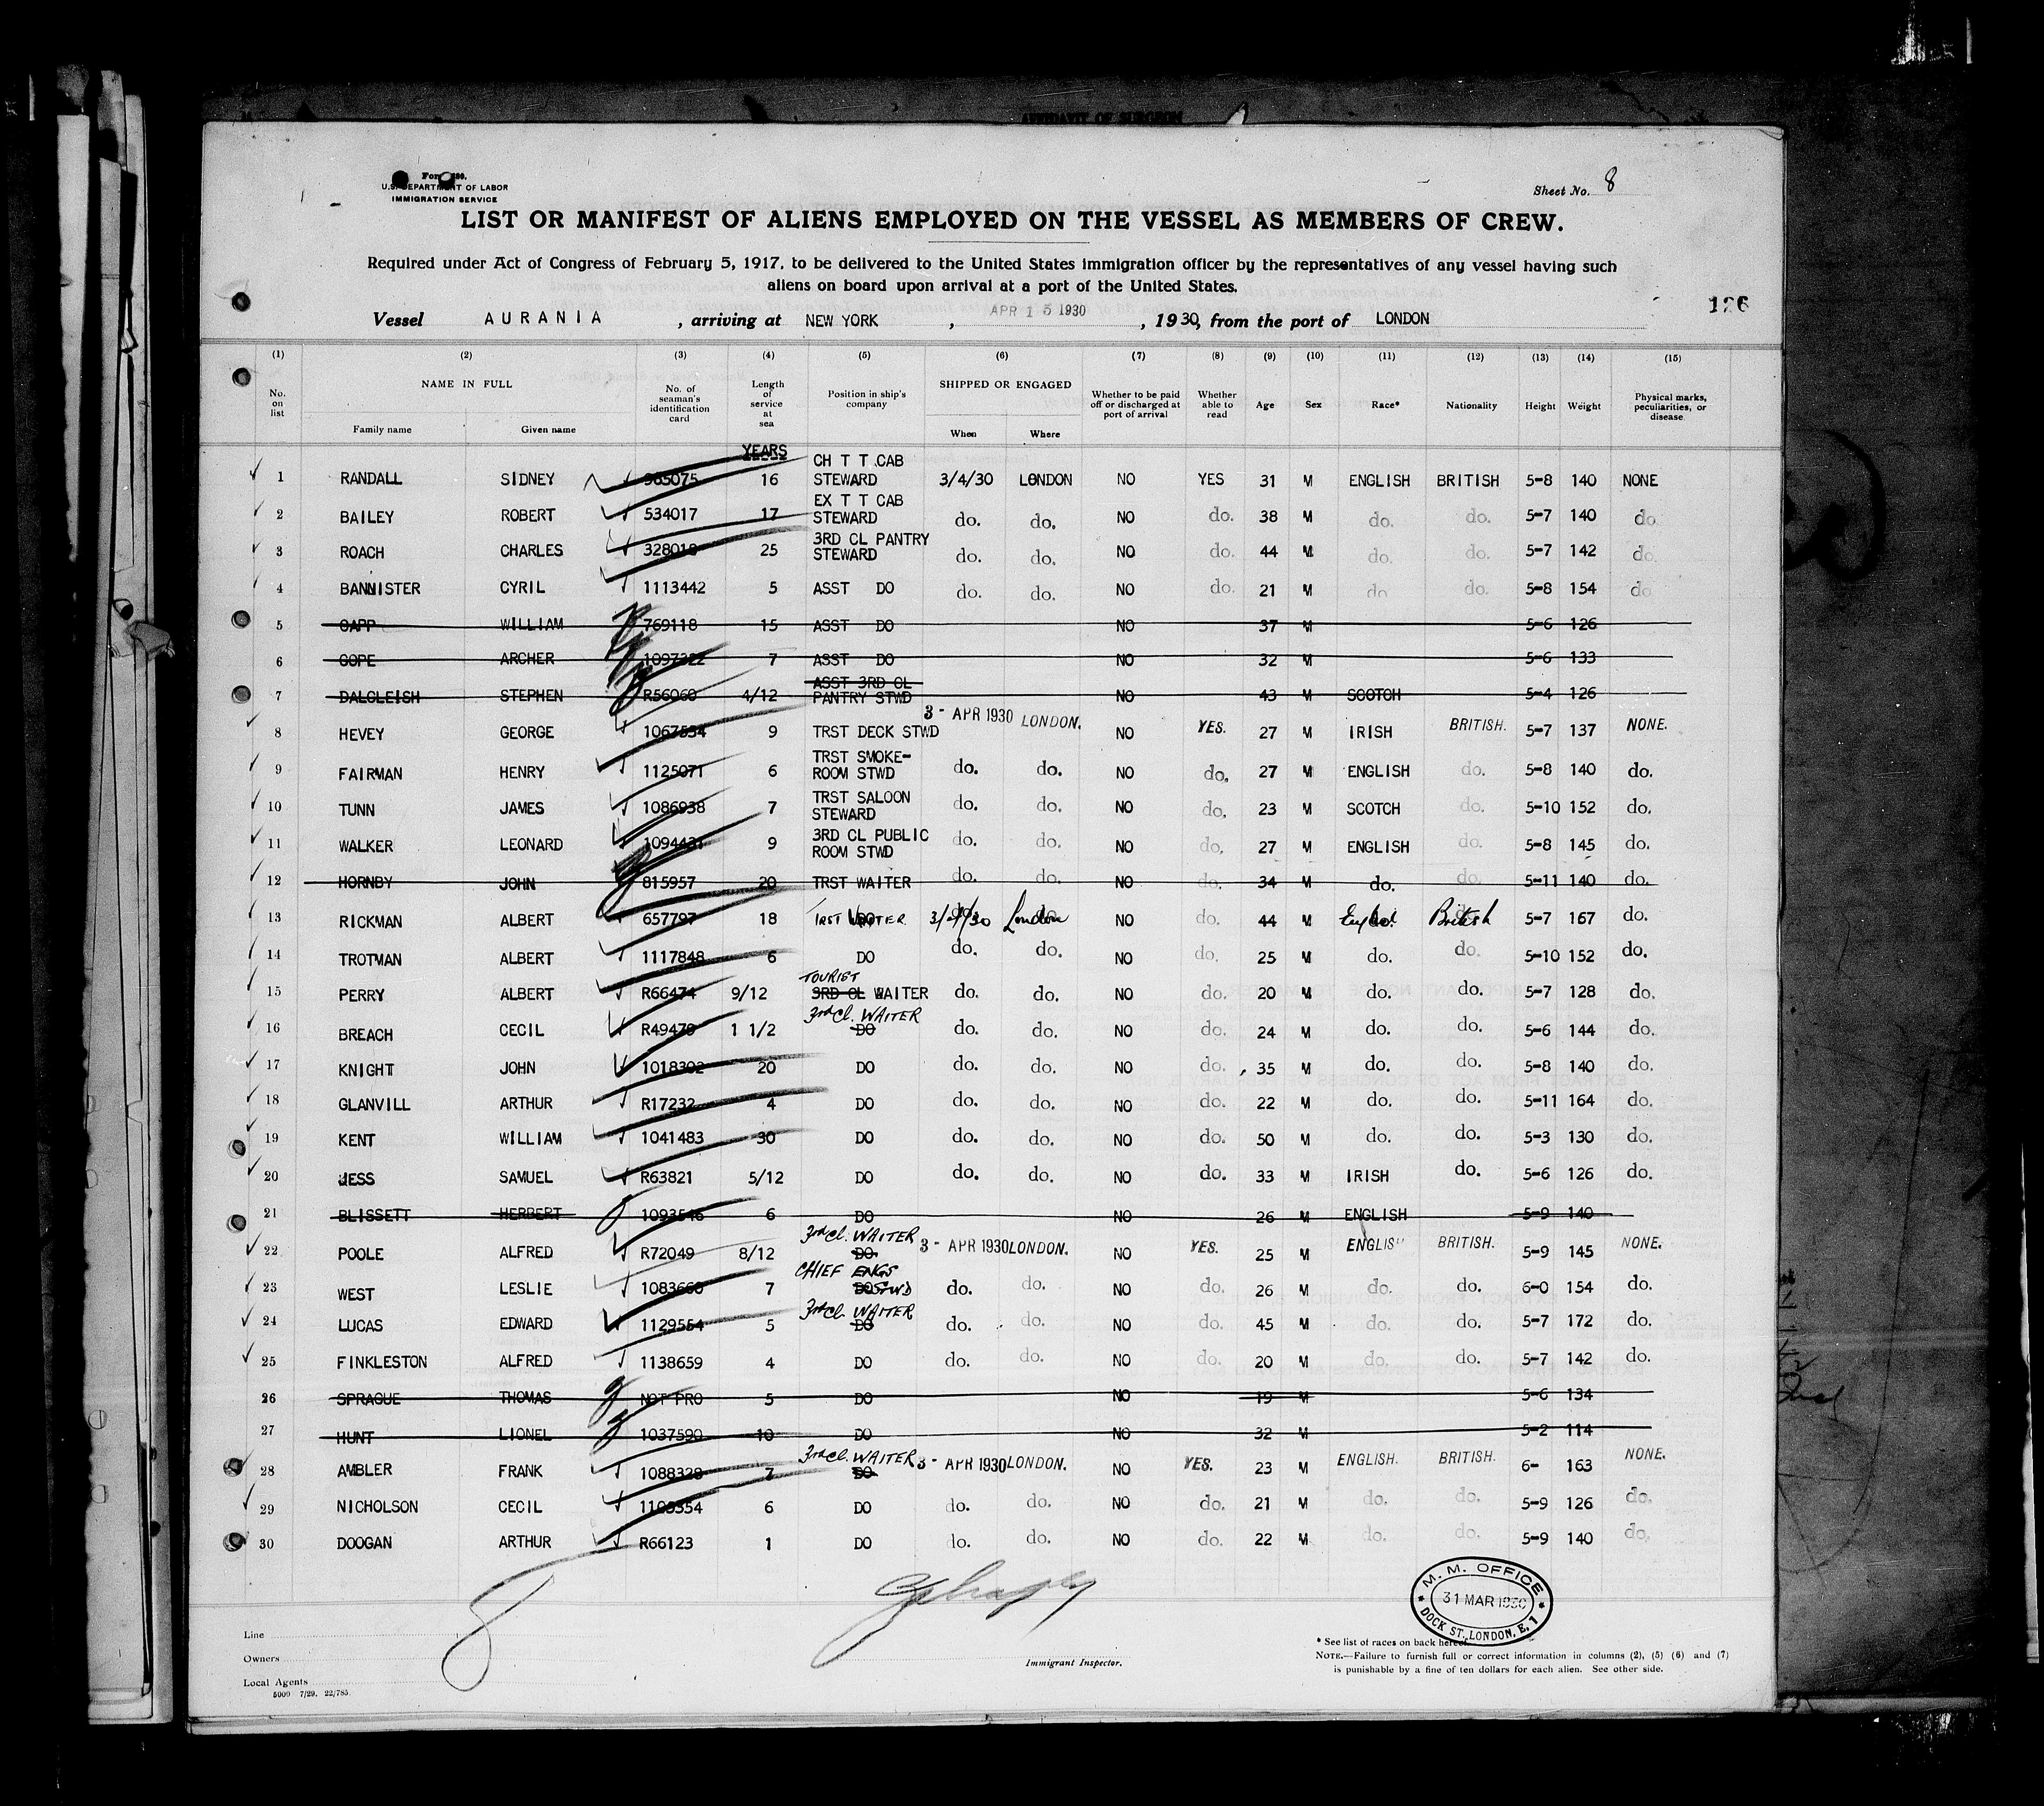 AFFIDAVIT OF SURGEON
U.S. DEPARTMENT OF LABOR
IMMIGRATION SERVICE
Sheet No. 8
LIST OR MANIFEST OF ALIENS EMPLOYED ON THE VESSEL AS MEMBERS OF CREW.
Required under Act of Congress of February 5, 1917, to be delivered to the United States immigration officer by the representatives of any vessel having such
aliens on board upon arrival at a port of the United States.
126
Vessel AURANIA, arriving at NEW YORK, APR 15 1930, 1930, from the port of LONDON
(1) (2) (3) (4) (5) (6) (7) (8) (9) (10) (11) (12) (13) (14) (15)
No. on list NAME IN FULL Family name Given name No. of seaman's identification card Length of service at sea Position in ship's company SHIPPED OR ENGAGED When Where Whether to be paid off or discharged at port of arrival Whether able to read Age Sex Race* Nationality Height Weight Physical marks, peculiarities, or disease
YEARS
1 RANDALL SIDNEY 965075 16 CH T T CAB STEWARD 3/4/30 LONDON NO YES 31 M ENGLISH BRITISH 5-8 140 NONE
2 BAILEY ROBERT 534017 17 EX T T CAB STEWARD do. do. NO do. 38 M do. do. 5-7 140 do
3 ROACH CHARLES 328018 25 3RD CL PANTRY STEWARD do. do. NO do. 44 M do. do. 5-7 142 do.
4 BANNISTER CYRIL 1113442 5 ASST DO do. do. NO do. 21 M do do. 5-8 154 do
5 CAPP WILLIAM 769118 15 ASST DO NO 37 M 5-6 126
6 COPE ARCHER 1097322 7 ASST DO NO 32 M 5-6 133
7 DALGLEISH STEPHEN R56060 4/12 ASST 3RD CL PANTRY STWD NO 43 M SCOTCH 5-4 126
8 HEVEY GEORGE 1067534 9 TRST DECK STWD 3- APR 1930 LONDON. NO YES. 27 M IRISH BRITISH. 5-7 137 NONE.
9 FAIRMAN HENRY 1125071 6 TRST SMOKE-ROOM STWD do. do. NO do. 27 M ENGLISH do. 5-8 140 do.
10 TUNN JAMES 1086938 7 TRST SALOON STEWARD do. do. NO do. 23 M SCOTCH do. 5-10 152 do.
11 WALKER LEONARD 1094431 9 3RD CL PUBLIC ROOM STWD do. do. NO do. 27 M ENGLISH do. 5-8 145 do.
12 HORNBY JOHN 815957 20 TRST WAITER do. do. NO do. 34 M do. do. 5-11 140 do.
13 RICKMAN ALBERT 657797 18 TRST WAITER 3/4/30 London NO do. 44 M English British 5-7 167 do.
14 TROTMAN ALBERT 1117848 6 DO do. do. NO do. 25 M do. do. 5-10 152 do.
15 PERRY ALBERT R66474 9/12 TOURIST 3RD CL WAITER do. do. NO do. 20 M do. do. 5-7 128 do.
16 BREACH CECIL R49479 1 1/2 3rd Cl. WAITER DO do. do. NO do. 24 M do. do. 5-6 144 do.
17 KNIGHT JOHN 1018302 20 DO do. do. NO do. 35 M do. do. 5-8 140 do.
18 GLANVILL ARTHUR R17232 4 DO do. do. NO do. 22 M do. do. 5-11 164 do.
19 KENT WILLIAM 1041483 30 DO do. do. NO do. 50 M do. do. 5-3 130 do.
20 JESS SAMUEL R63821 5/12 DO do. do. NO do. 33 M IRISH do. 5-6 126 do.
21 BLISSETT HERBERT 1093546 6 DO NO 26 M ENGLISH 5-9 140
22 POOLE ALFRED R72049 8/12 3rd Cl. WAITER DO. 3- APR 1930 LONDON. NO YES. 25 M ENGLISH BRITISH. 5-9 145 NONE.
23 WEST LESLIE 1083660 7 CHIEF ENGS DO STWD do. do. NO do. 26 M do. do. 6-0 154 do.
24 LUCAS EDWARD 1129554 5 3rd Cl. WAITER DO do. do. NO do. 45 M do. do. 5-7 172 do.
25 FINKLESTON ALFRED 1138659 4 DO do. do. NO do. 20 M do. do. 5-7 142 do.
26 SPRAGUE THOMAS NOT PRO 5 DO NO 19 M 5-6 134
27 HUNT LIONEL 1037590 10 DO NO 32 M 5-2 114
28 AMBLER FRANK 1088328 7 3rd Cl. WAITER DO 3- APR 1930 LONDON. NO YES. 23 M ENGLISH. BRITISH. 6- 163 NONE.
29 NICHOLSON CECIL 1109354 6 DO do. do. NO do. 21 M do. do. 5-9 126 do.
30 DOOGAN ARTHUR R66123 1 DO do. do. NO do. 22 M do. do. 5-9 140 do.
M. M. OFFICE
31 MAR 1930
DOCK ST., LONDON, E. 1
Line
Owners
Local Agents
5000 7/29. 22/785.
Immigrant Inspector.
* See list of races on back hereof.
NOTE.—Failure to furnish full or correct information in columns (2), (5) (6) and (7)
is punishable by a fine of ten dollars for each alien. See other side.